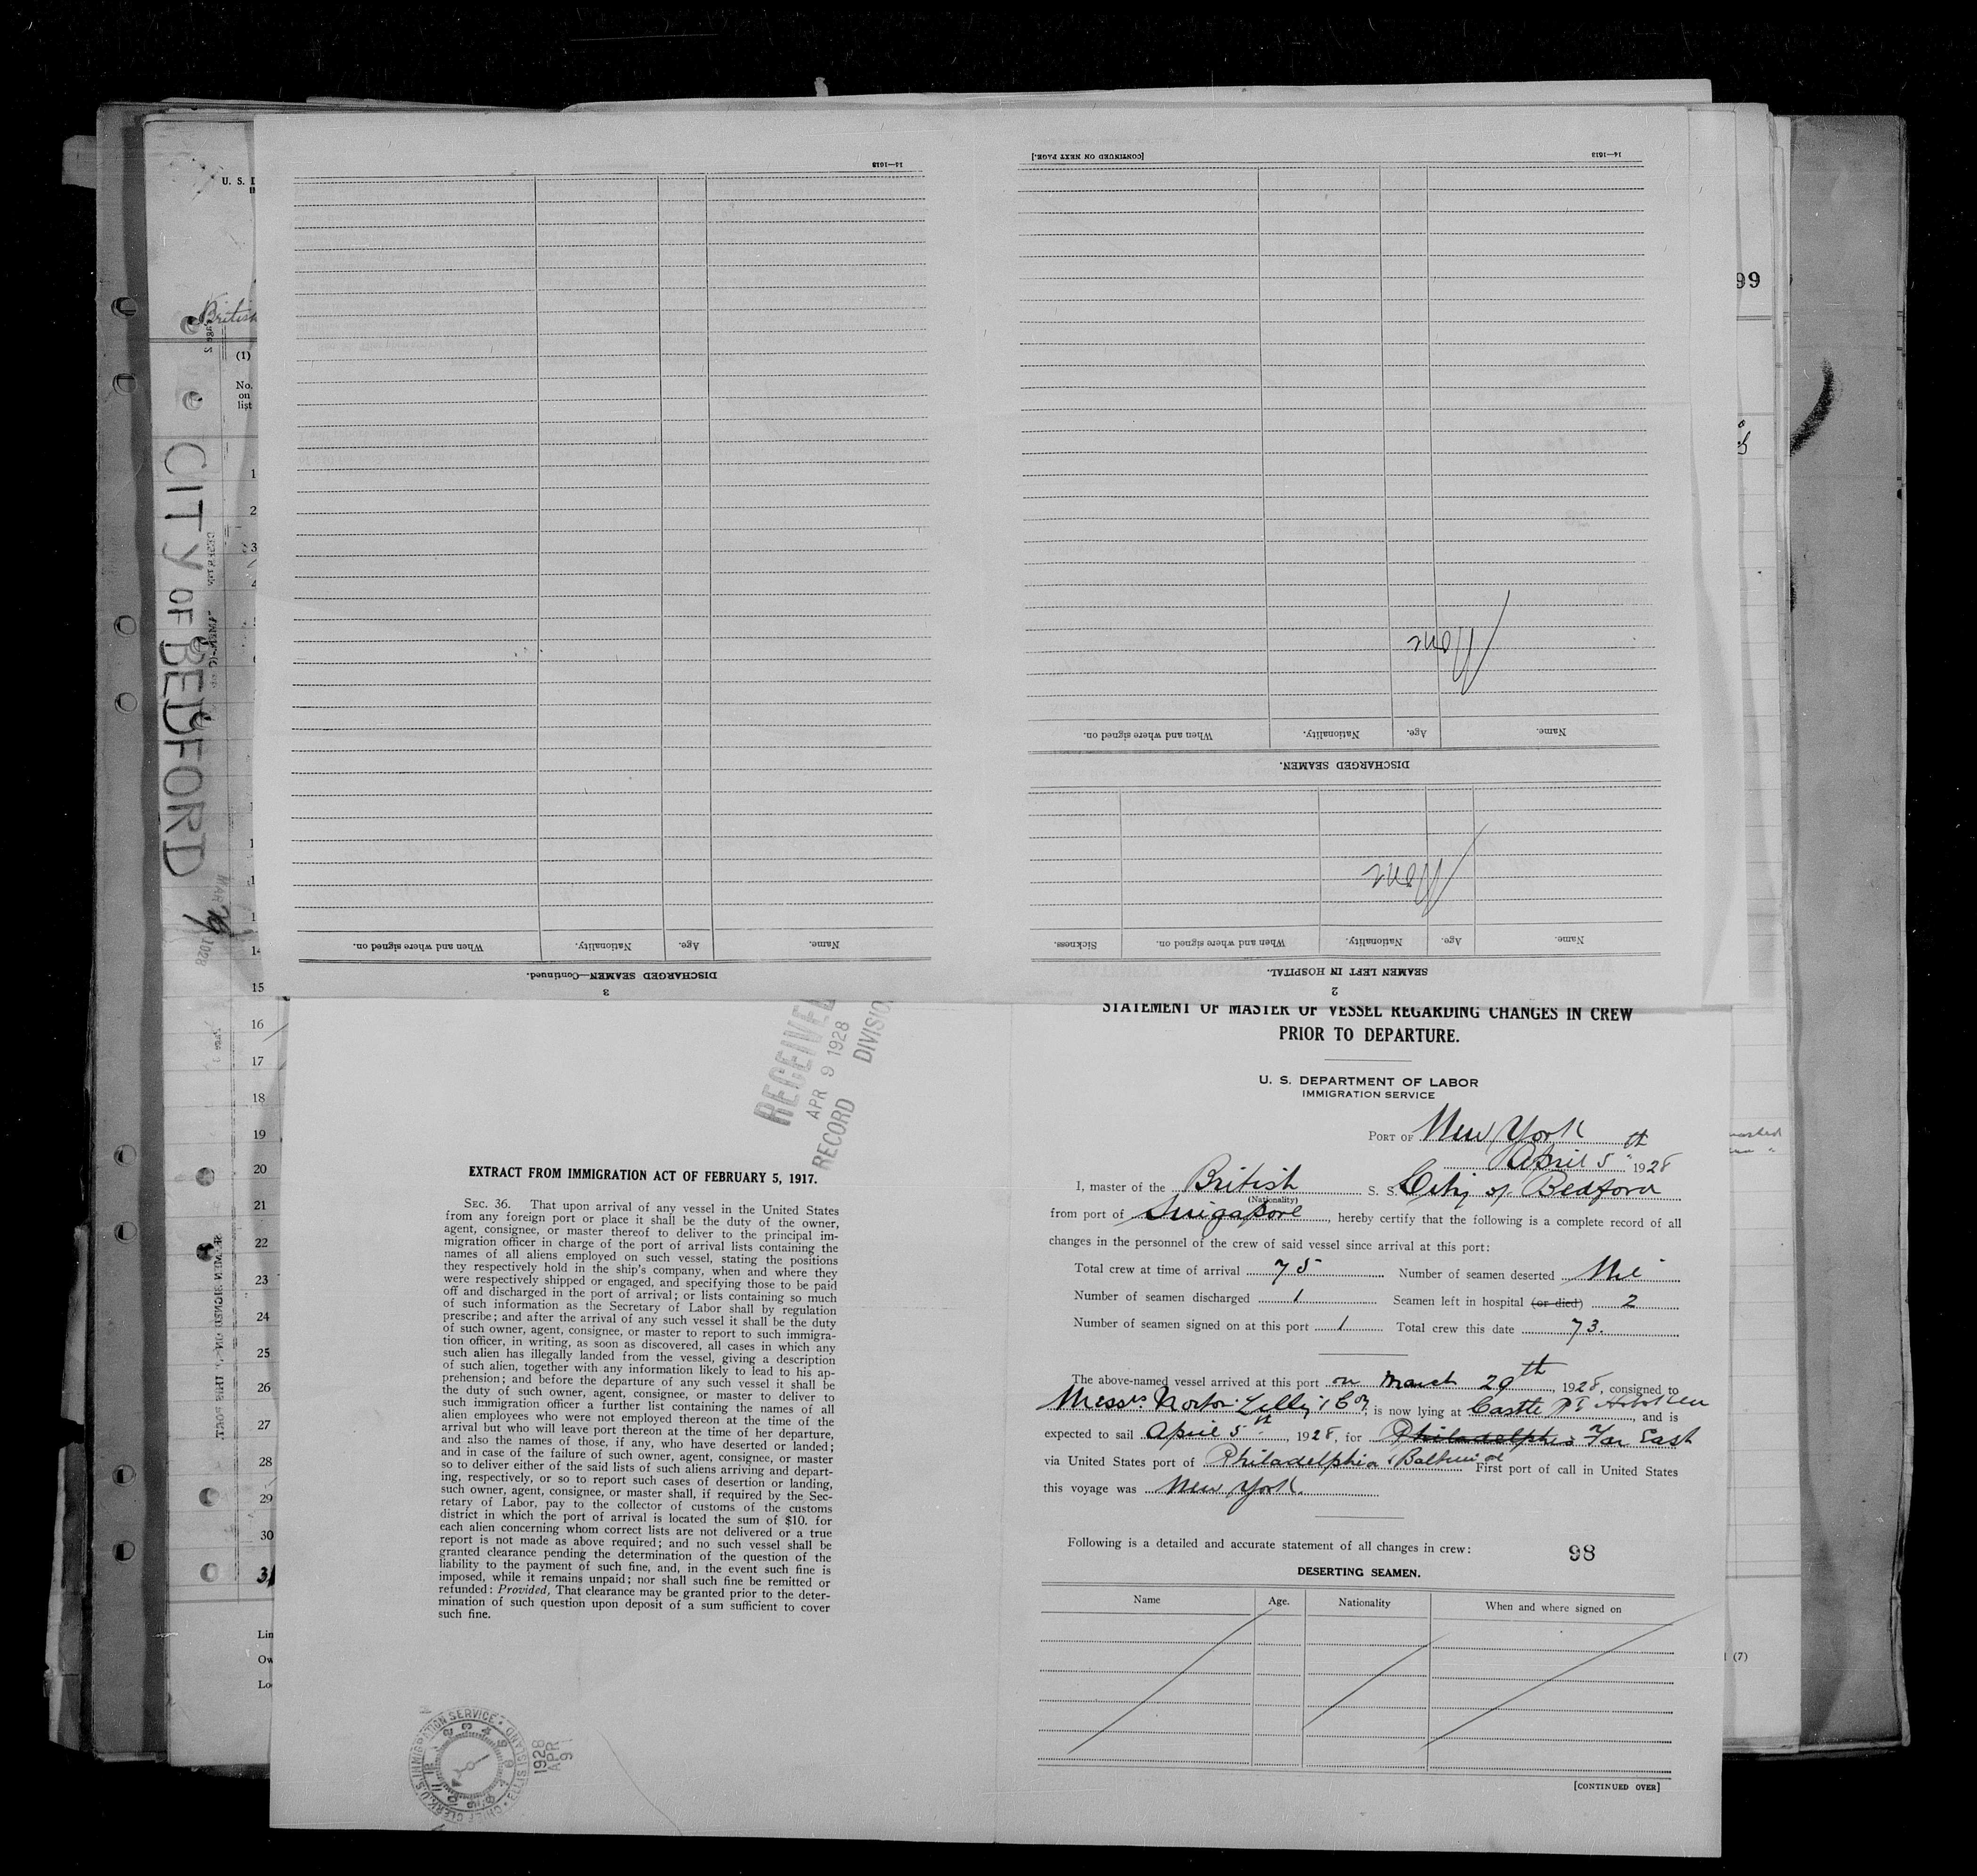 14—1613
DISCHARGED SEAMEN—Continued.
3
Name.
Age.
Nationality.
When and where signed on.
[CONTINUED ON NEXT PAGE.]
14—1613
2
SEAMEN LEFT IN HOSPITAL.
Name.
Age.
Nationality.
When and where signed on.
Sickness.
None
DISCHARGED SEAMEN.
Name.
Age.
Nationality.
When and where signed on.
None
U. S.
British
(1)
No.
on
list
CITY OF BEDFORD
1
2
3
14
15
16
17
18
19
20
21
22
23
24
25
26
27
28
29
30
31
99
(7)
RECEIVED
APR 9 1928
RECORD DIVISION
EXTRACT FROM IMMIGRATION ACT OF FEBRUARY 5, 1917.
SEC. 36. That upon arrival of any vessel in the United States
from any foreign port or place it shall be the duty of the owner,
agent, consignee, or master thereof to deliver to the principal im-
migration officer in charge of the port of arrival lists containing the
names of all aliens employed on such vessel, stating the positions
they respectively hold in the ship's company, when and where they
were respectively shipped or engaged, and specifying those to be paid
off and discharged in the port of arrival; or lists containing so much
of such information as the Secretary of Labor shall by regulation
prescribe; and after the arrival of any such vessel it shall be the duty
of such owner, agent, consignee, or master to report to such immigra-
tion officer, in writing, as soon as discovered, all cases in which any
such alien has illegally landed from the vessel, giving a description
of such alien, together with any information likely to lead to his ap-
prehension; and before the departure of any such vessel it shall be
the duty of such owner, agent, consignee, or master to deliver to
such immigration officer a further list containing the names of all
alien employees who were not employed thereon at the time of the
arrival but who will leave port thereon at the time of her departure,
and also the names of those, if any, who have deserted or landed;
and in case of the failure of such owner, agent, consignee, or master
so to deliver either of the said lists of such aliens arriving and depart-
ing, respectively, or so to report such cases of desertion or landing,
such owner, agent, consignee, or master shall, if required by the Sec-
retary of Labor, pay to the collector of customs of the customs
district in which the port of arrival is located the sum of $10. for
each alien concerning whom correct lists are not delivered or a true
report is not made as above required; and no such vessel shall be
granted clearance pending the determination of the question of the
liability to the payment of such fine, and, in the event such fine is
imposed, while it remains unpaid; nor shall such fine be remitted or
refunded: Provided, That clearance may be granted prior to the deter-
mination of such question upon deposit of a sum sufficient to cover
such fine.
U.S. IMMIGRATION SERVICE • ELLIS ISLAND • CHIEF CLERK
1928
APR
9
STATEMENT OF MASTER OF VESSEL REGARDING CHANGES IN CREW
PRIOR TO DEPARTURE.
U. S. DEPARTMENT OF LABOR
IMMIGRATION SERVICE
PORT OF New York
April 5th 1928
I, master of the British S. S. City of Bedford
(Nationality)
from port of Singapore, hereby certify that the following is a complete record of all
changes in the personnel of the crew of said vessel since arrival at this port:
Total crew at time of arrival 75 Number of seamen deserted Nil
Number of seamen discharged 1 Seamen left in hospital (or died) 2
Number of seamen signed on at this port 1 Total crew this date 73.
The above-named vessel arrived at this port on March 29th, 1928, consigned to
Messrs Norton Lilly & Coy, is now lying at Castle Pt Hoboken, and is
expected to sail April 5th, 1928, for Philadelphia Far East
via United States port of Philadelphia & Baltimore First port of call in United States
this voyage was New York.
Following is a detailed and accurate statement of all changes in crew:
98
DESERTING SEAMEN.
Name Age. Nationality When and where signed on
[CONTINUED OVER]